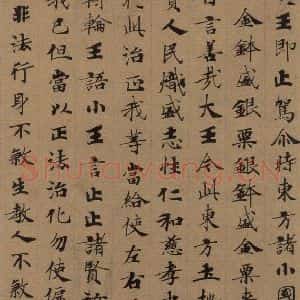 王即止駕尒時東方諸小國
金鉢盛銀粟銀鉢盛金粟來
言善哉大王今此東方土地
寶人民熾盛志性仁和慈孝
於此治正我等當給使左右
轉輪王語小王言止止諸賢
我已但當以正法治化勿使偏
非法行身不煞生教人不煞
Shufawang.CN